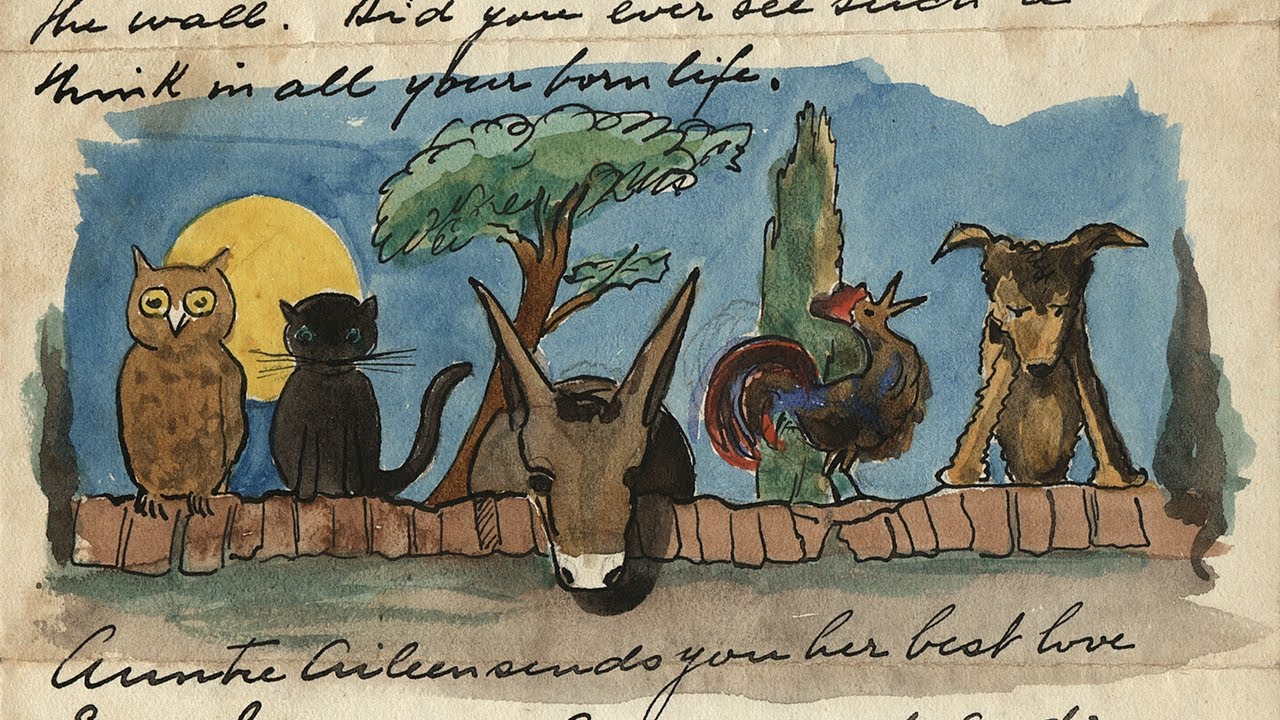 the wall. Did you ever see such a
think in all your born life.
Auntie Aileen sends you her best love